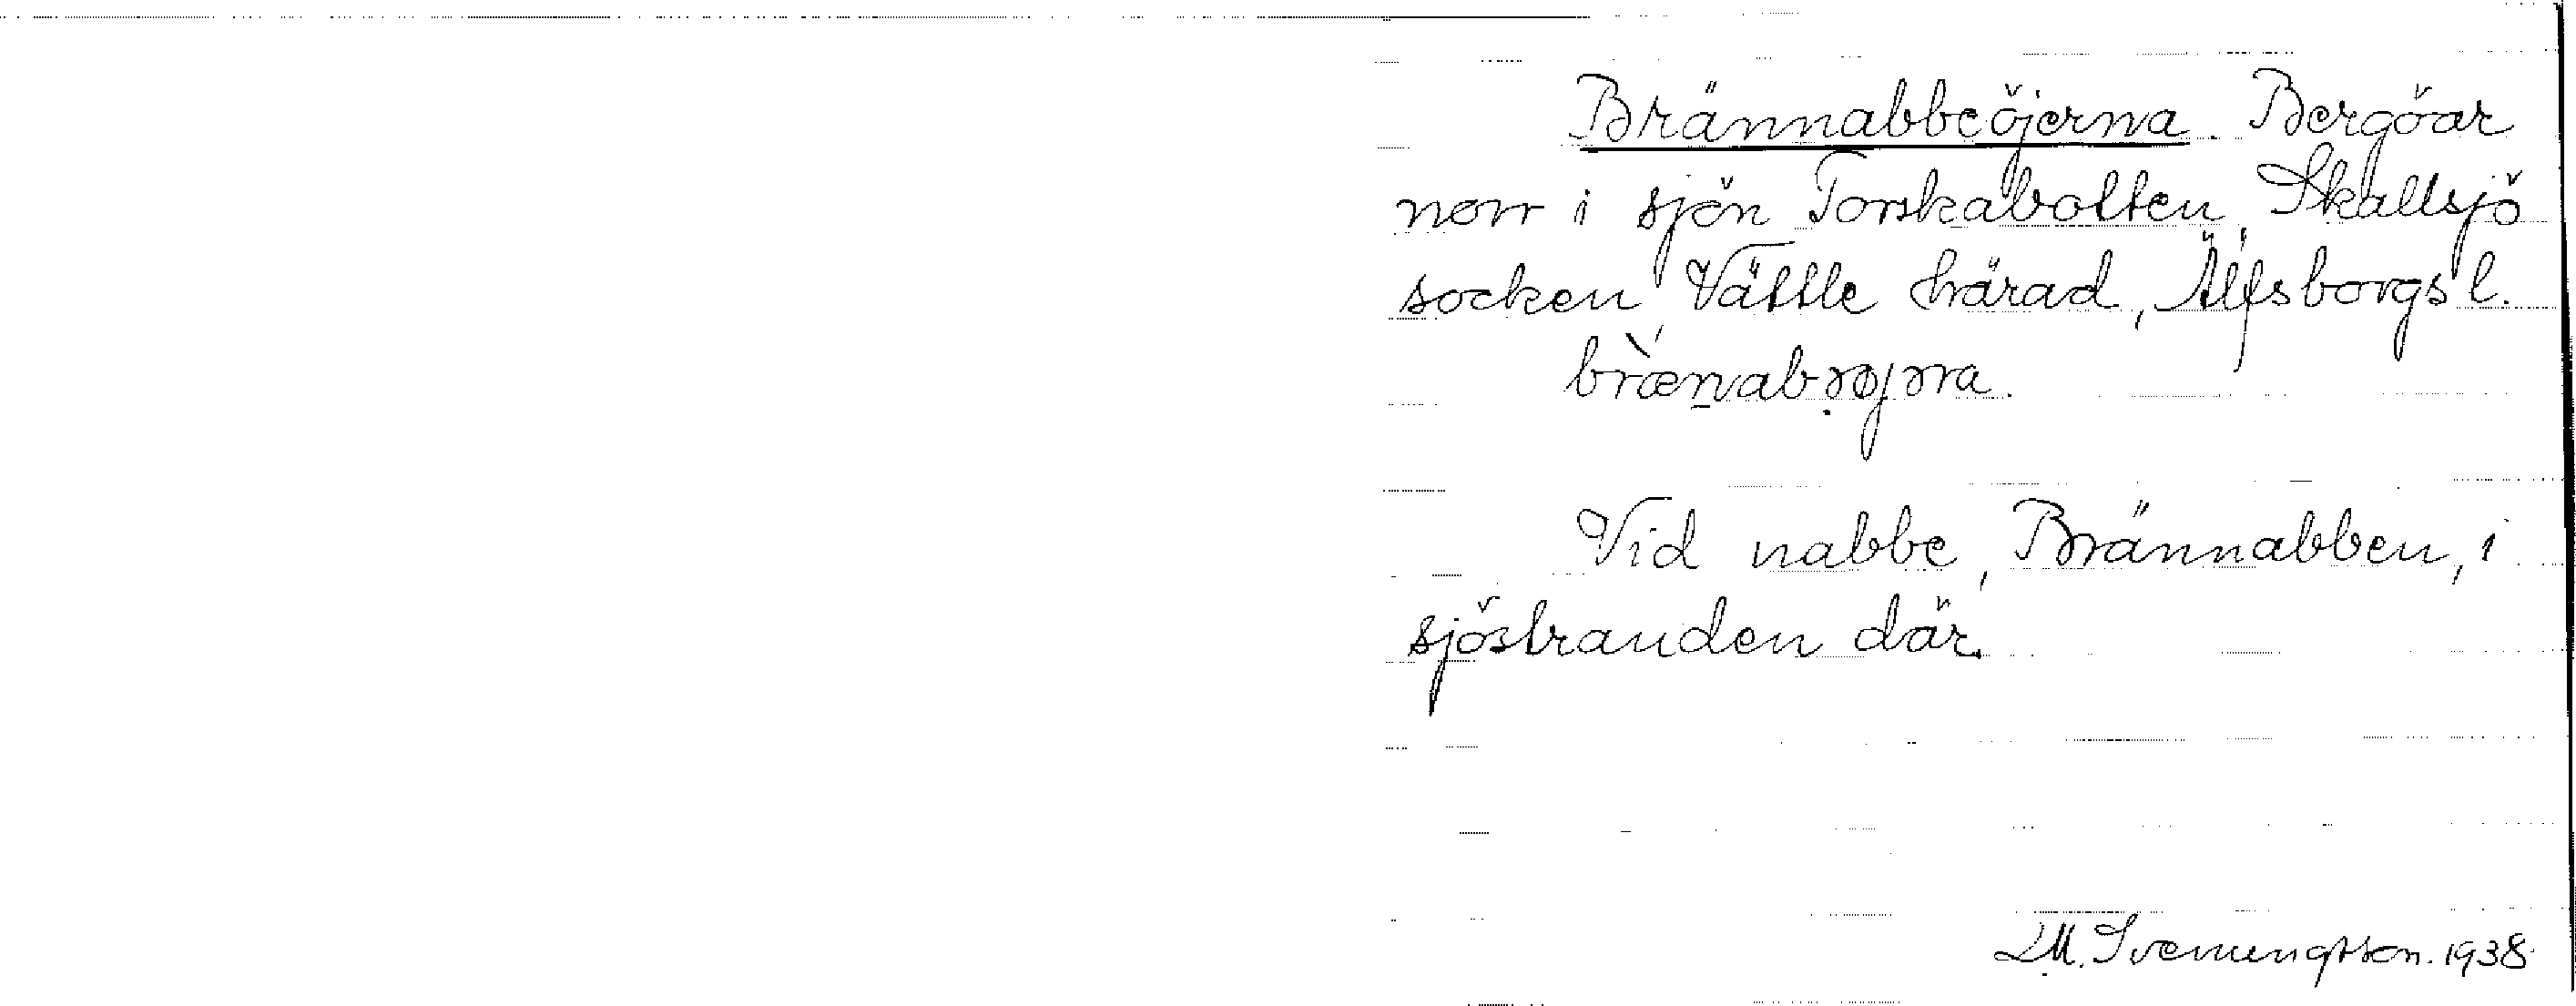 Brännabbeöjerna. Bergöar
norr i sjön Torskabotten, Skallsjö
socken, Vättle härad, Älfsborgs l.
Vid nabbe, Brännabben, i
sjöstranden där.
1938